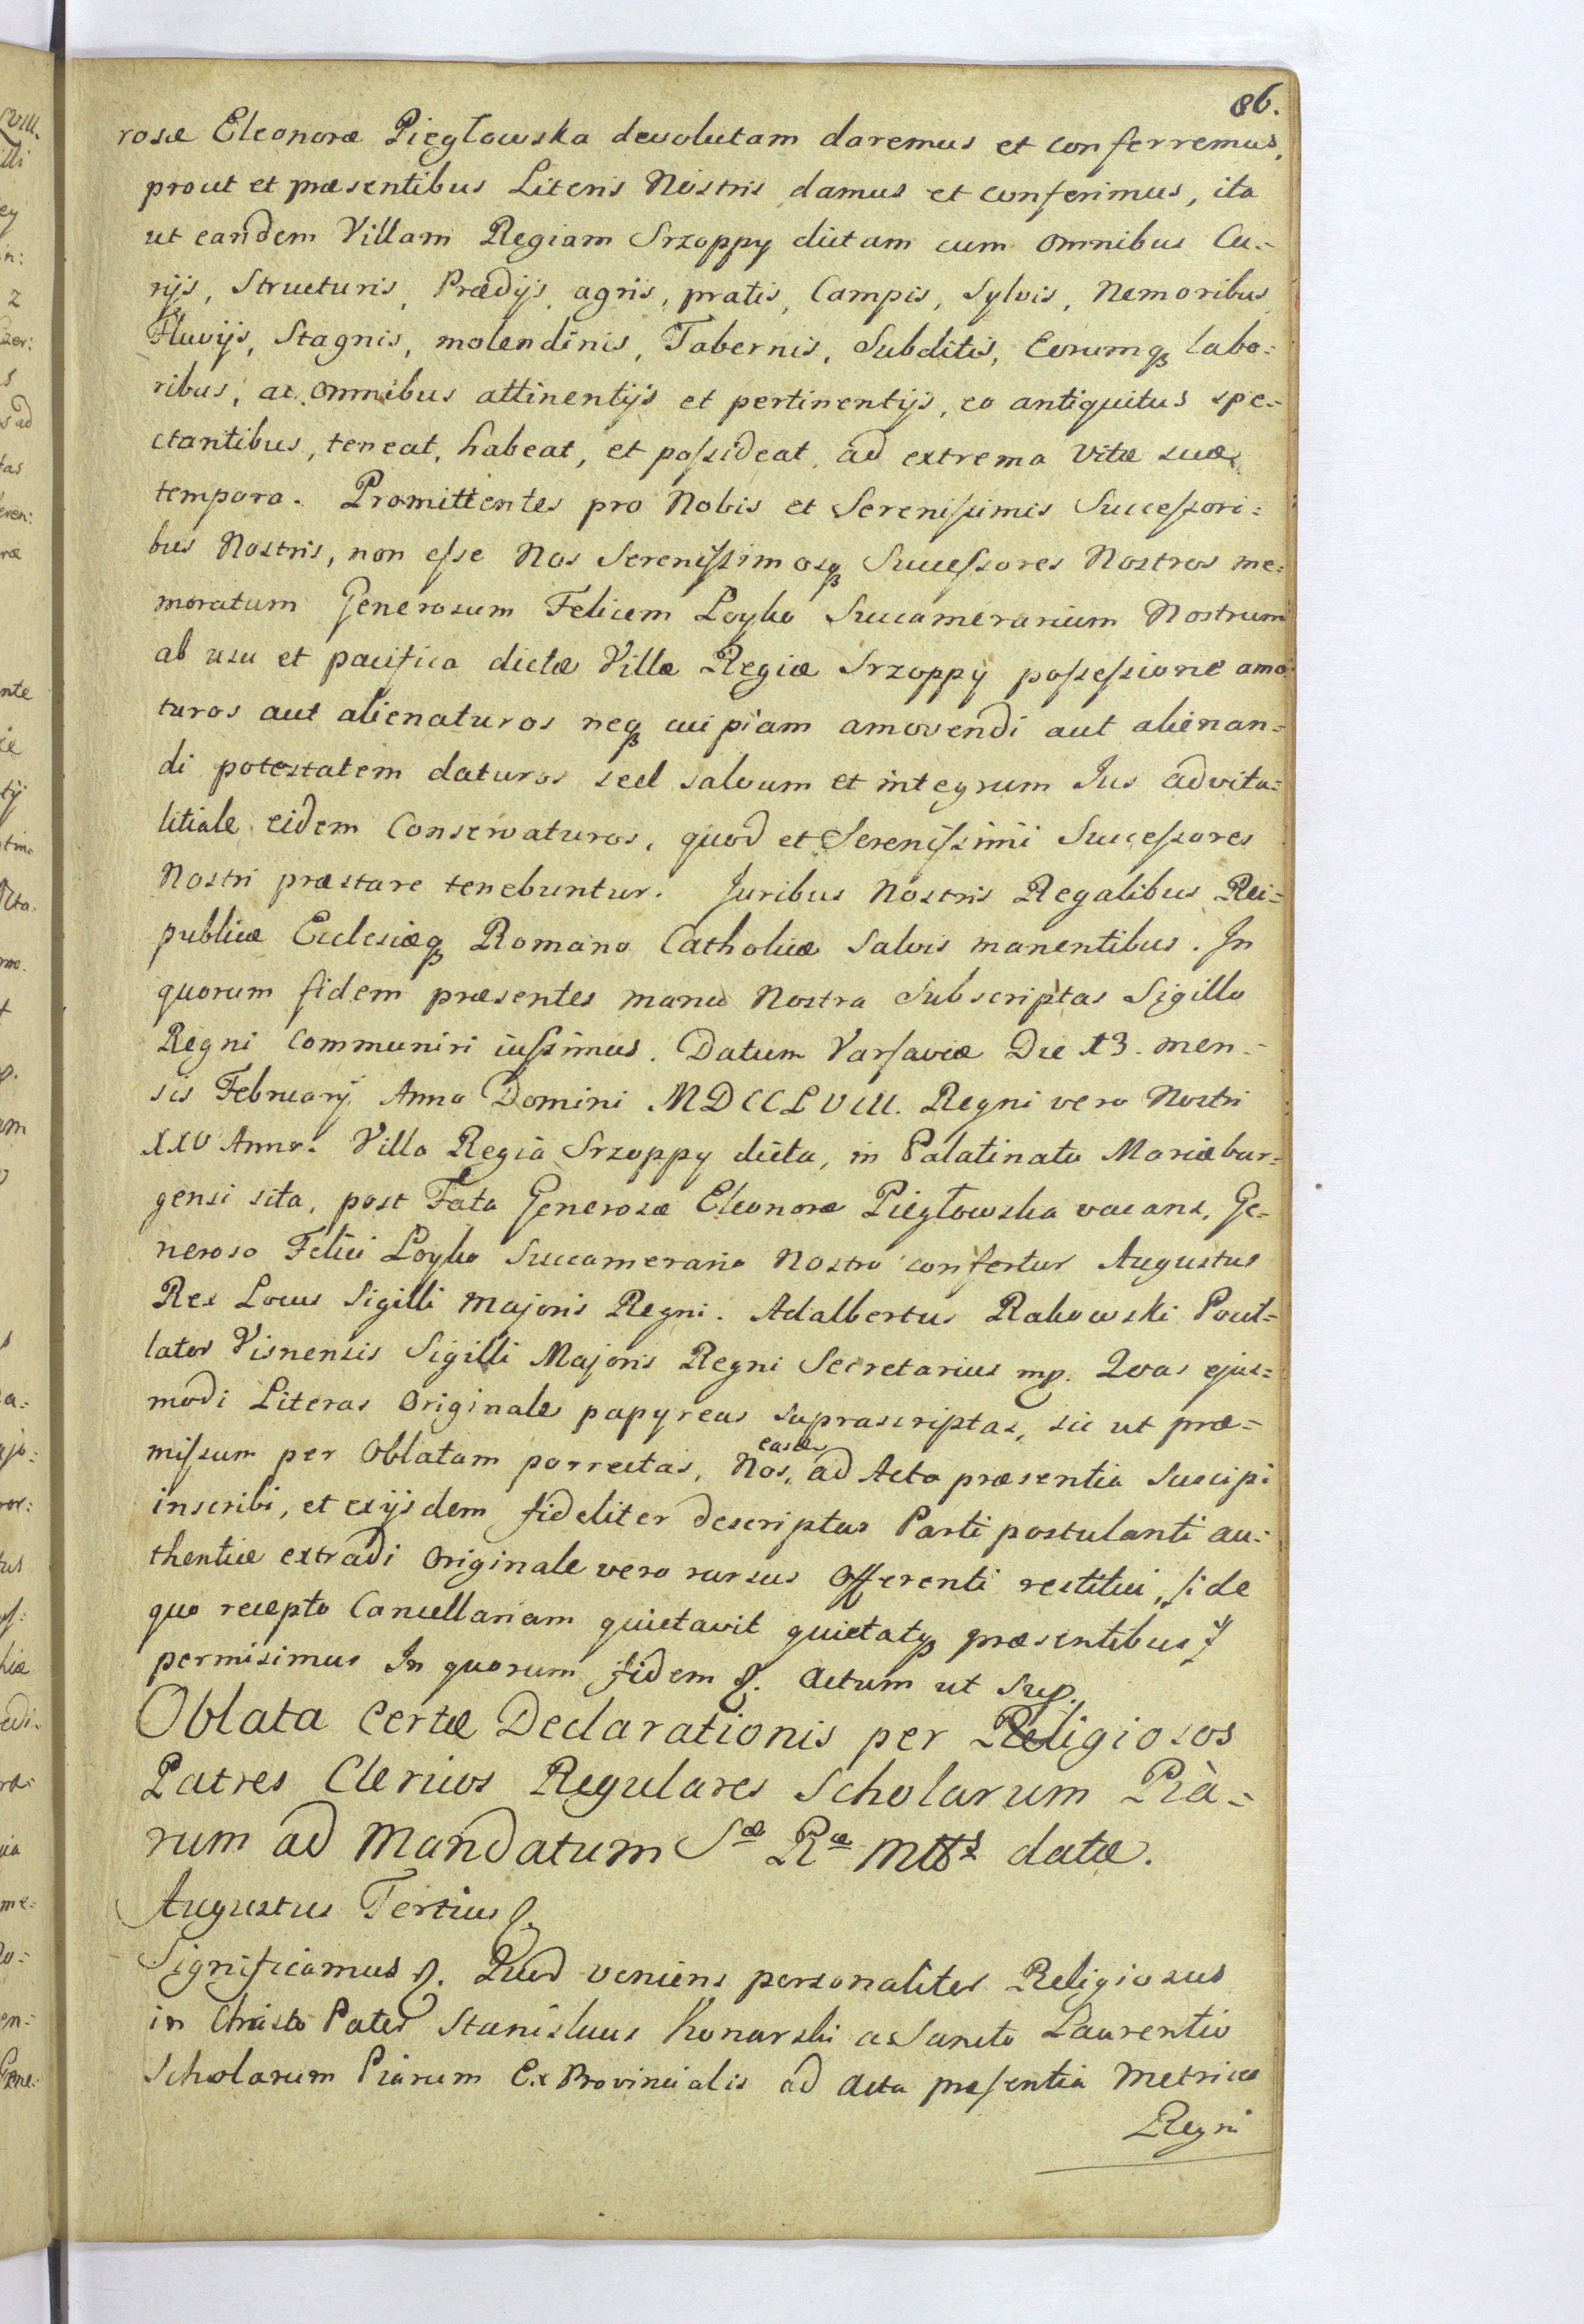 86.
rosæ Eleonoræ Piegłowska devolutam daremus et conferremus,
prout et præsentibus Literis Nostris damus et conferimus, ita
ut eandem Villam Regiam Srzoppy dictam cum omnibus Cu=
rijs, Structuris, Prædijs, agris, pratis, Campis, Sylvis, Nemoribus
Fluvijs, Stagnis, molendinis, Tabernis, Subditis, Eorumq labo=
ribus, ac omnibus attinentijs et pertinentijs, eo antiquitus spe=
ctantibus, teneat, habeat, et possideat, ad extrema Vitæ suæ
tempora. Promittentes pro Nobis et Serenissimis Successori=
bus Nostris, non esse Nos Serenissimosq Successores Nostros me=
moratum Generosum Felicem Loyko Succamerarium Nostrum
ab usu et pacifica dictæ Villæ Regiæ Srzoppy possessione amo
turos aut alienaturos neq cuipiam amovendi aut alienan=
di potestatem daturos sed salvum et integrum Jus advita=
litiale eidem Conservaturos, quod et Serenissimi Successores
Nostri præstare tenebuntur. Juribus Nostris Regalibus Rei=
publicæ Ecclesiæq Romano Catholicæ Salvis manentibus. In
quorum fidem præsentes manu Nostra Subscriptas Sigillo
Regni Communiri iussimus. Datum Varsaviæ Die 13. men=
sis Februarij Anno Domini MDCCLVIII. Regni vero Nostri
XXV Anno. Villa Regia Srzoppy dicta, in Palatinatu Mariæbur=
gensi sita, post Fata Generosæ Eleonoræ Piegłowska vacans, Ge=
neroso Felici Loyko Succamerario Nostro confertur Augustus
Rex Locus Sigilli Majoris Regni. Adalbertus Rakowski Pocil=
lator Visnensis Sigilli Majoris Regni Secretarius mp. Quas ejus=
modi Literas Originales papyreas suprascriptas, sic ut præ=
missum per Oblatam porrectas, Nos, easdem ad Acta præsentia Suscipi
inscribi, et ex ijsdem fideliter descriptas Parti postulanti au=
thentice extradi Originale vero rursus Offerenti restitui, si de
quo recepto Cancellariam quietavit quietatq præsentibus
permisimus In quorum fidem &. Actum ut Sup.
Oblata Certæ Declarationis per Religiosos
Patres Clericos Regulares Scholarum Pia=
rum ad Mandatum Sæ Ræ Mttis datæ.
Augustus Tertius &.
Significamus &. Quod veniens personaliter Religiosus
in Christo Pater Stanislaus Konarski a Sancto Laurentio
Scholarum Piarum Ex Provincialis ad Acta præsentia Metrices
Regni